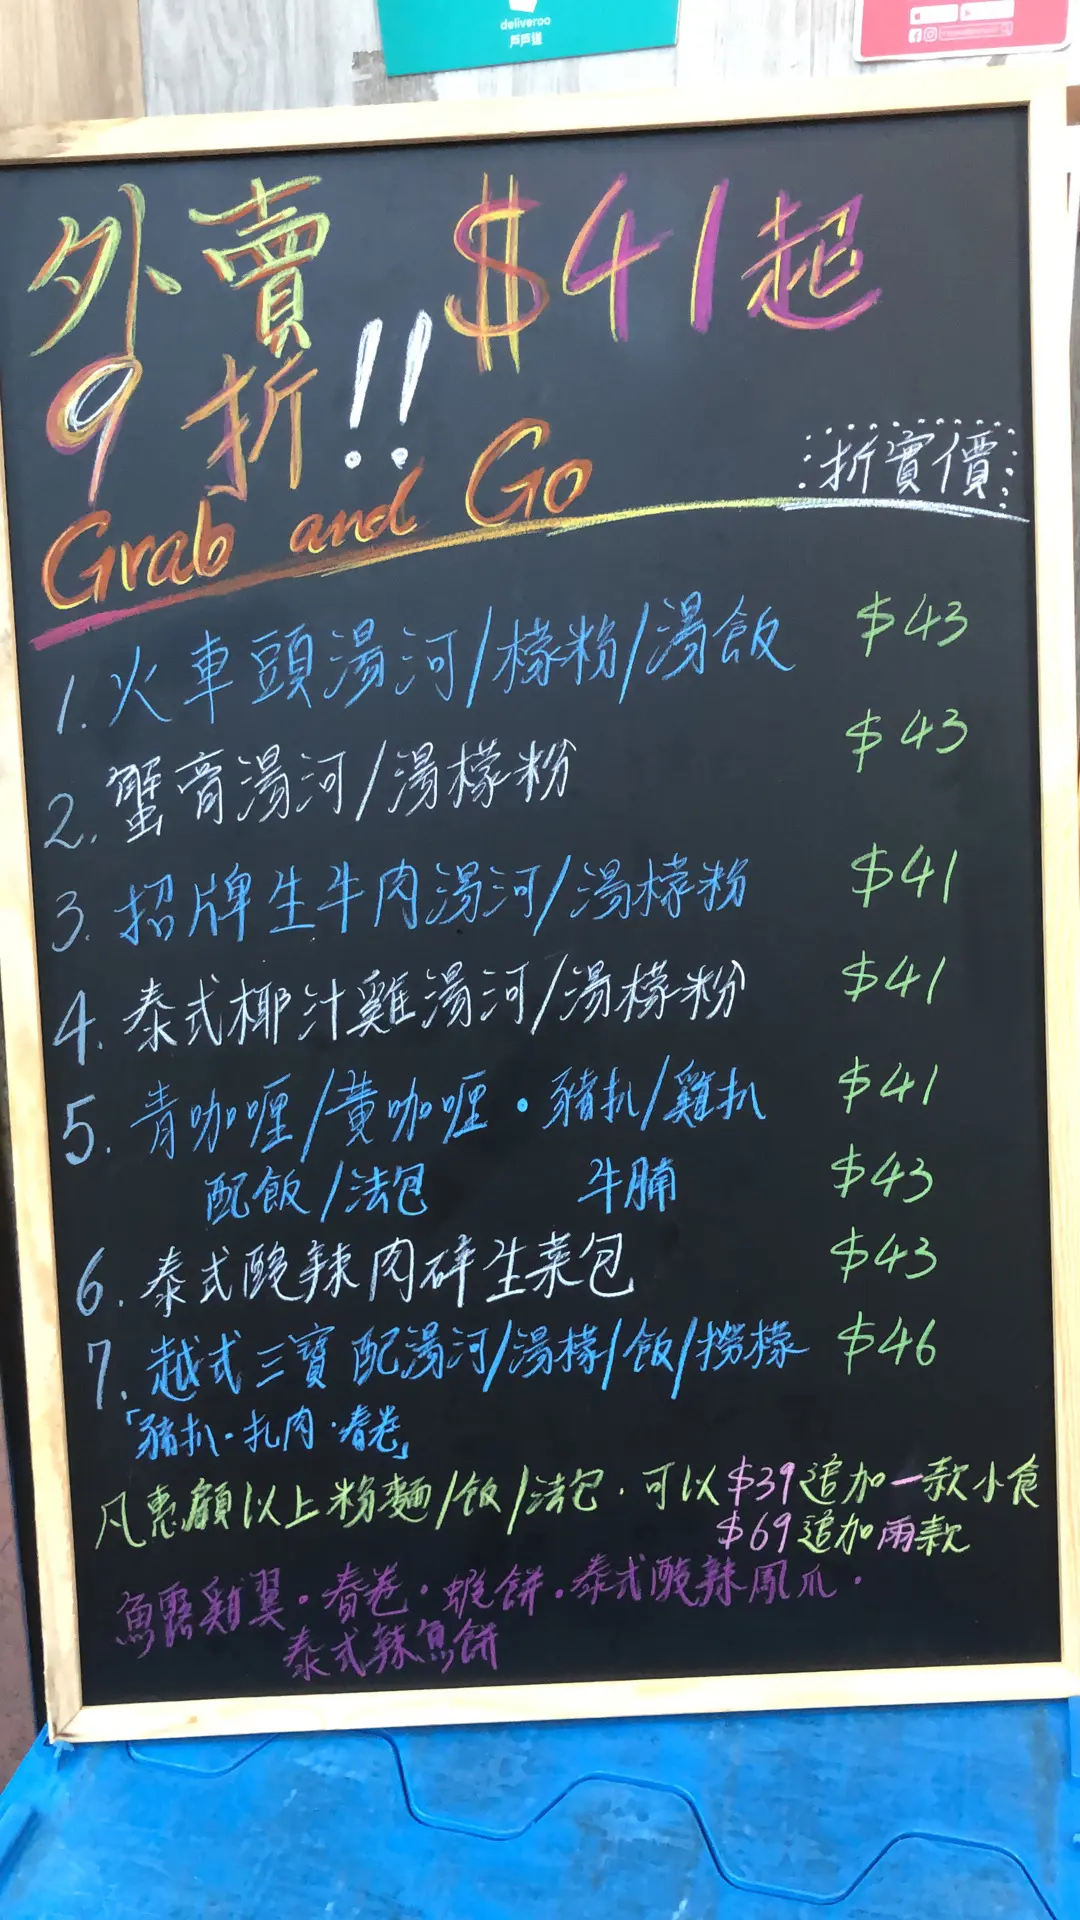 deliveroo
戶戶送
外賣 $41起
9折!!
Grab and Go
折實價
1. 火車頭湯河/檬粉/湯飯 $43
2. 蟹膏湯河/湯檬粉 $43
3. 招牌生牛肉湯河/湯檬粉 $41
4. 泰式椰汁雞湯河/湯檬粉 $41
5. 青咖喱/黄咖喱·豬扒/雞扒 $41
配飯/法包 牛腩 $43
6. 泰式酸辣肉碎生菜包 $43
7. 越式三寶配湯河/湯檬/飯/撈檬 $46
「豬扒·扎肉·春卷」
凡惠顧以上粉麵/飯/法包·可以$39追加一款小食
$69追加兩款
魚露雞翼·春卷·蝦餅·泰式酸辣鳳爪·
泰式辣魚餅